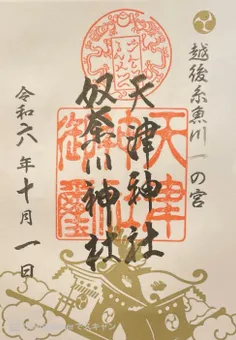 越後糸魚川一の宮
天津神社
奴奈川神社
令和六年十月一日
天津
神社
御璽